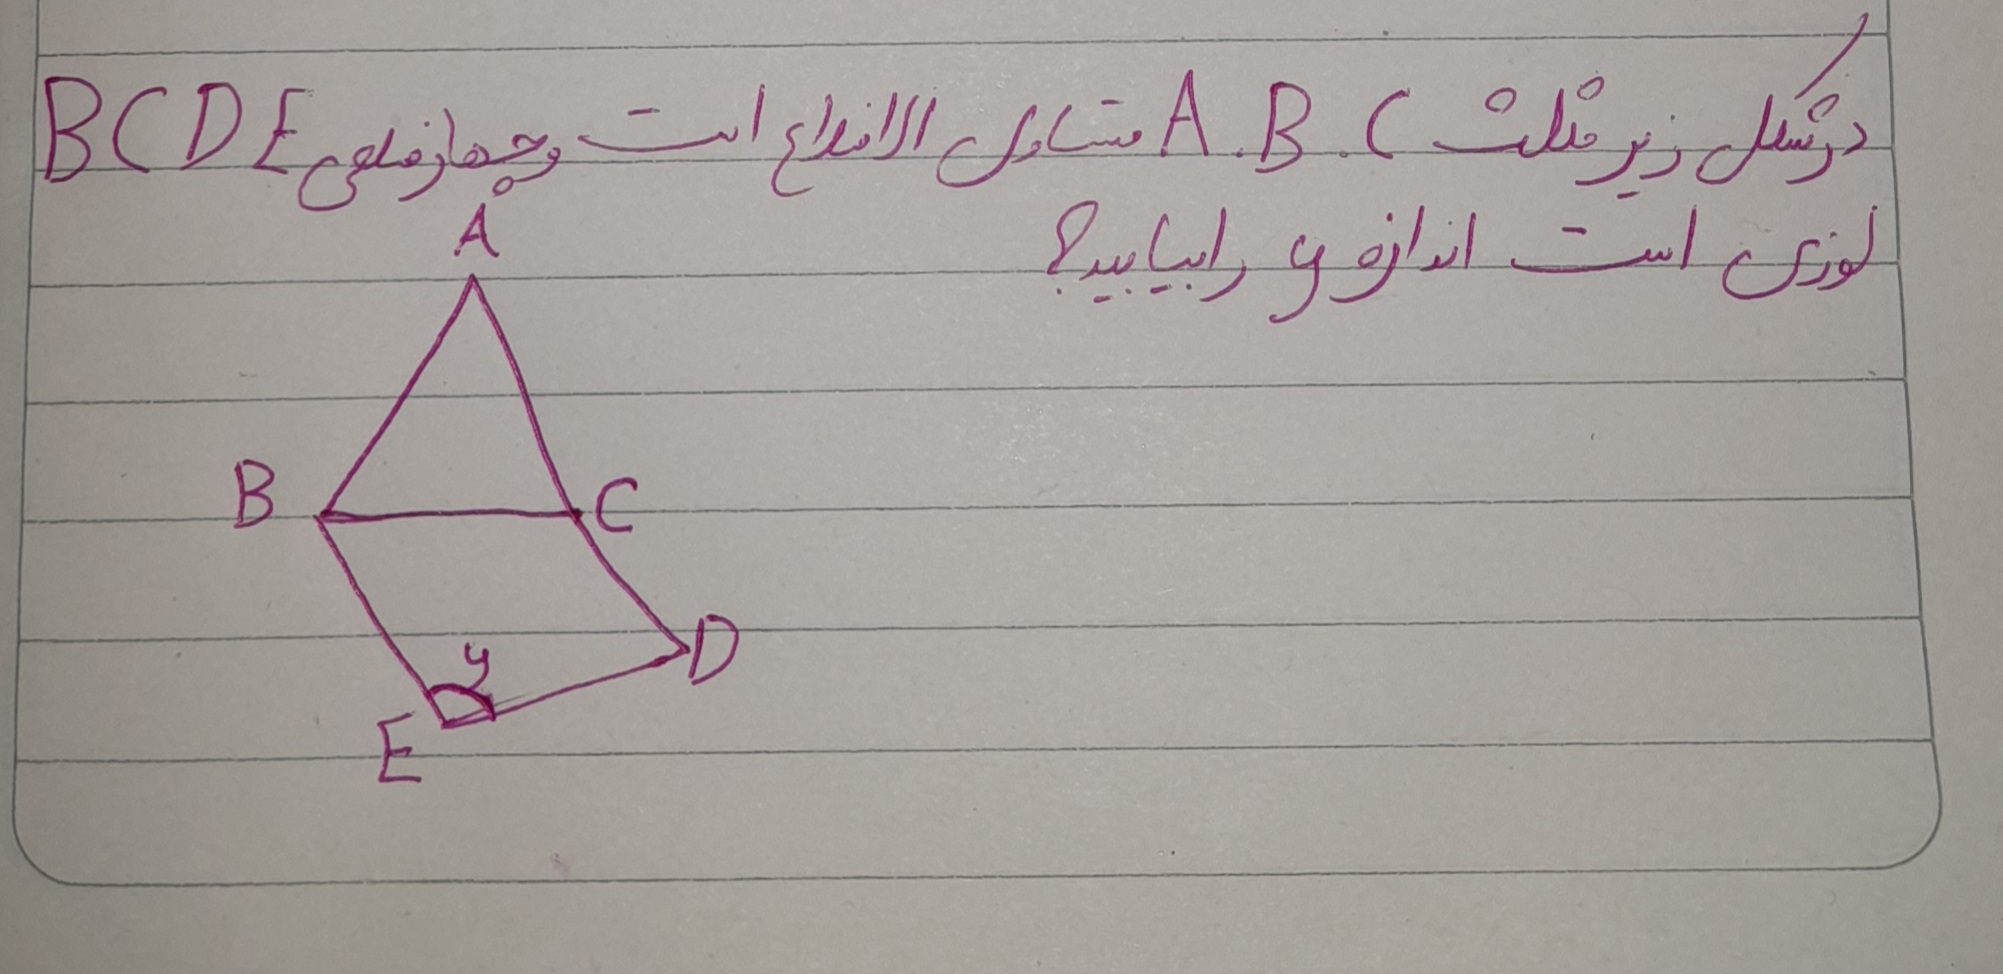 در شکل زیر مثلث A.B.C متساوی الاضلاع است وچهارضلعی BCDE
لوزی است اندازه y رابیابید؟
A
B
C
y
D
E